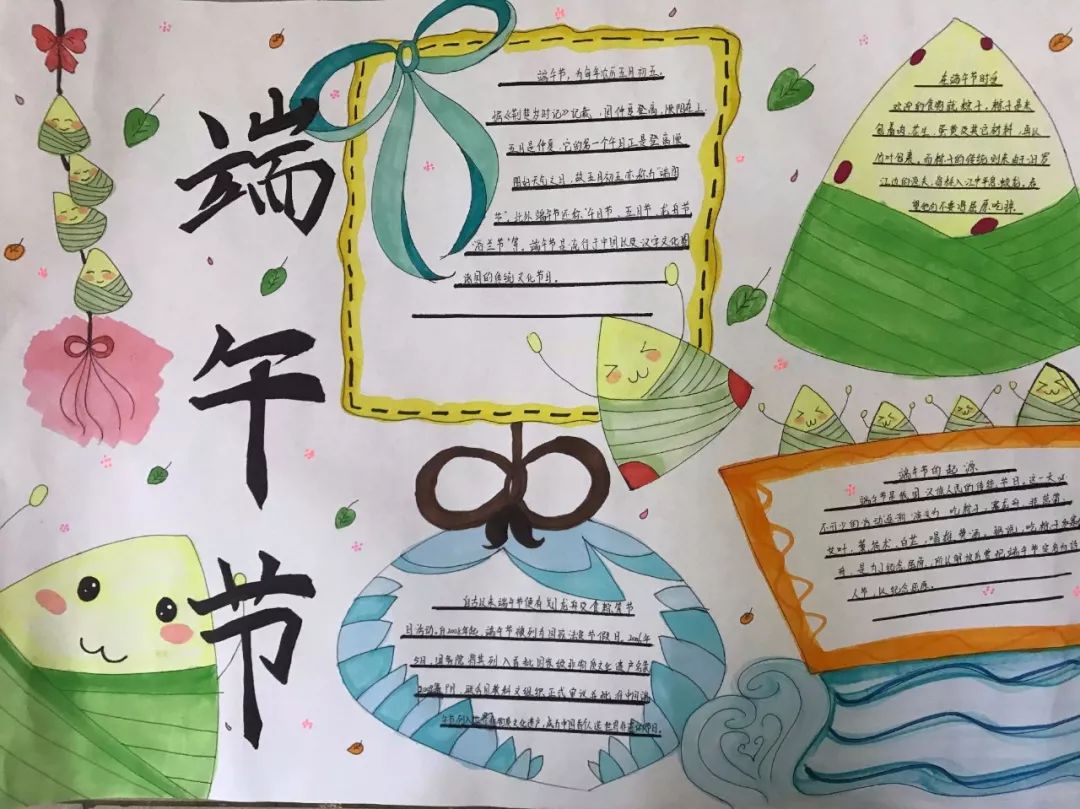 端
午
节
端午节，为每年农历五月初五。
据《荆楚岁时记》记载，因仲夏登高，顺阳在上，
五月是仲夏，它的第一个午日正是登高顺
阳好天气之日，故五月初五亦称为"端阳
节"。此外端午节还称"午日节、五月节、龙舟节
浴兰节"等。端午节是流行于中国以及汉字文化圈
诸国的传统文化节日。
在端午节时
欢迎的食物就粽子，粽子是来
包着肉、花生、蛋黄及其它材料，再以
竹叶包裹。而粽子的传统则来由于汨罗
江边的渔夫，将米丢入江中平息蛟龙，
望他们不要得屈原吃掉。
端午节的起源
端午节是我国汉族人民的传统节日。这一天必
不可少的活动逐渐演变为：吃粽子，赛龙舟，挂菖蒲、
艾叶，薰苍术、白芷，喝雄黄酒。据说，吃粽子和赛龙
舟，是为了纪念屈原，所以解放后曾把端午节定名为诗
人节，以纪念屈原。
自古以来端午节便有划龙舟及食粽等节
日活动。自2008年起，端午节被列为国家法定节假日。2006年
5月，国务院将其列入首批国家级非物质文化遗产名录
2009年9月，联合国教科文组织正式审议并批准中国端
午节列入世界非物质文化遗产，成为中国首个入选世界非遗的节日。